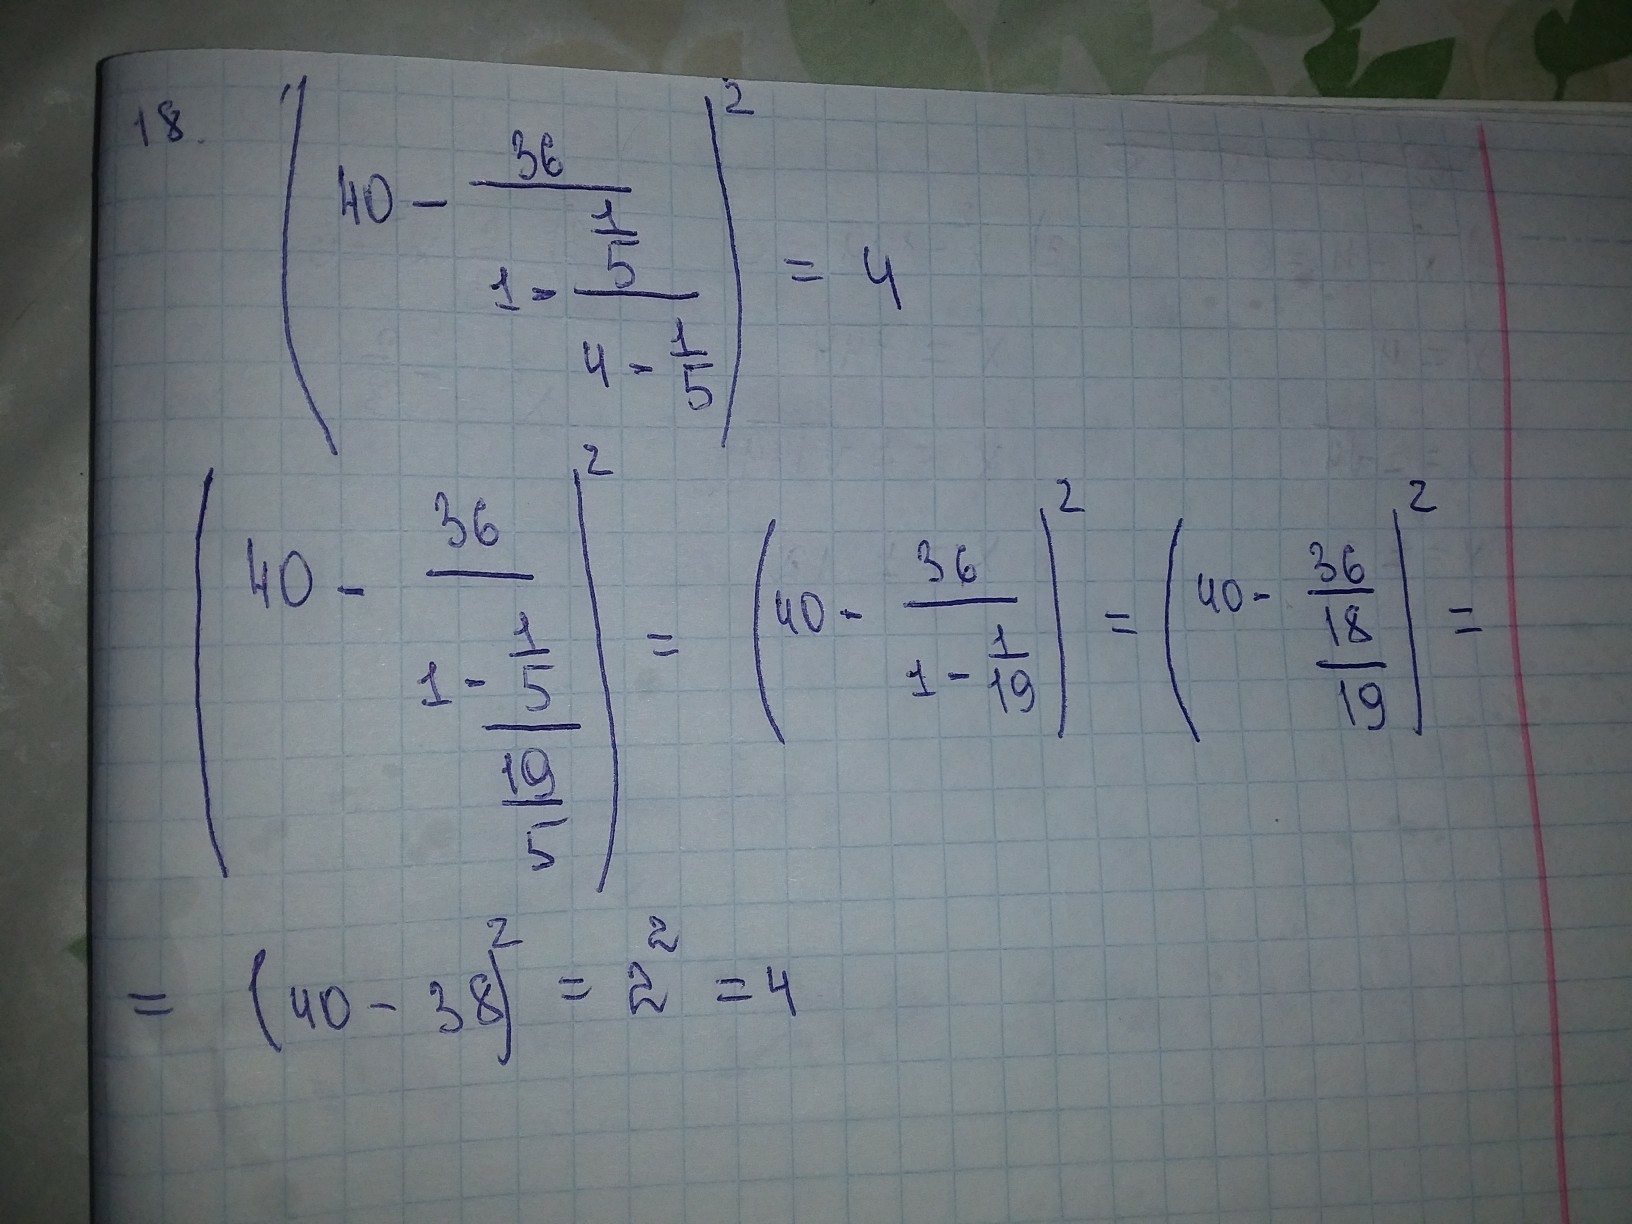 18. (40 - 36/(1 - (1/5)/(4 - 1/5)))² = 4
(40 - 36/(1 - (1/5)/(19/5)))² = (40 - 36/(1 - 1/19))² = (40 - 36/(18/19))² =
= (40 - 38)² = 2² = 4